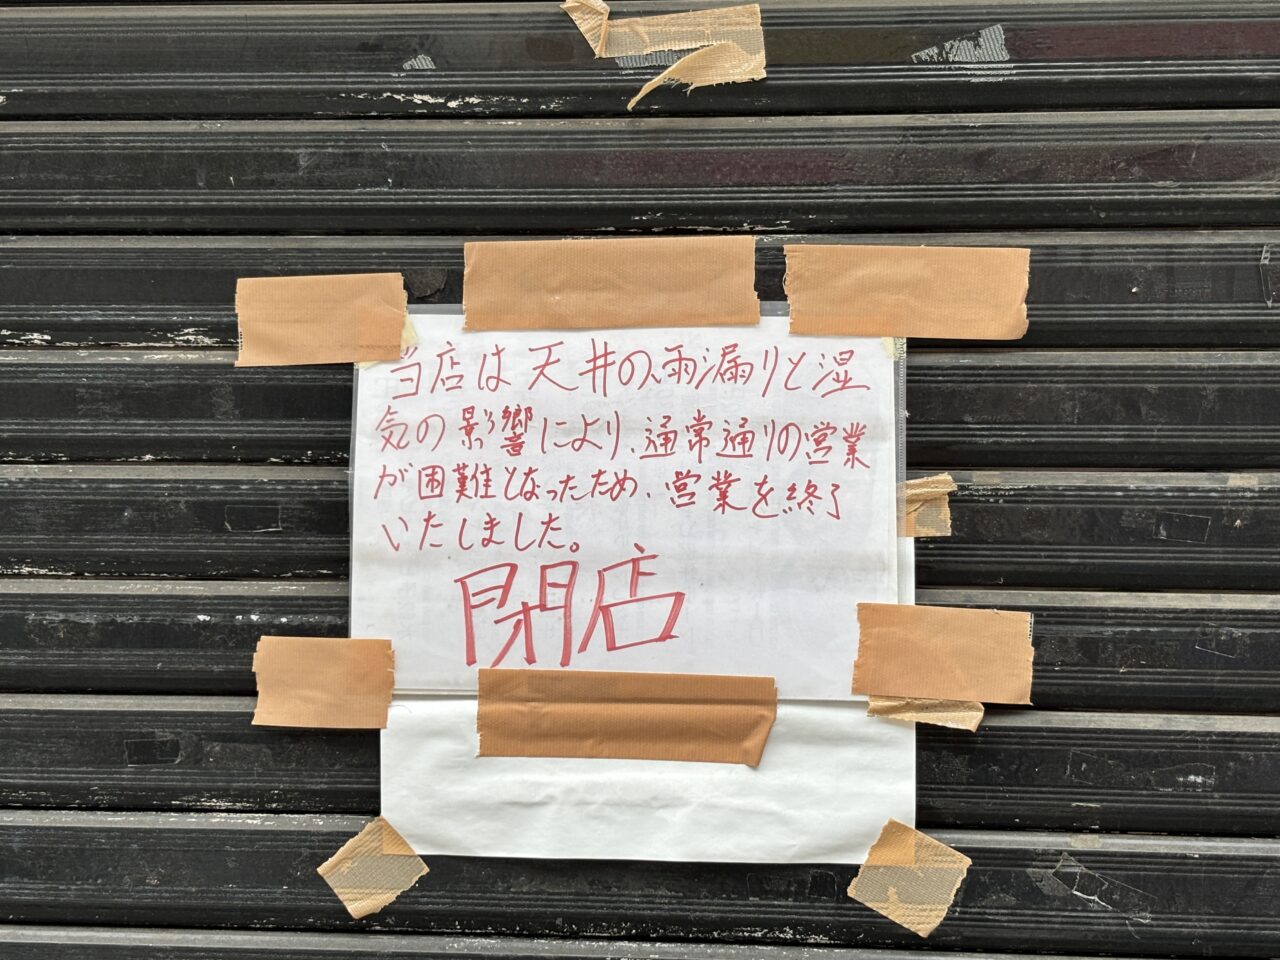 当店は天井の、雨漏りと湿
気の影響により、通常通りの営業
が困難となったため、営業を終了
いたしました。
閉店